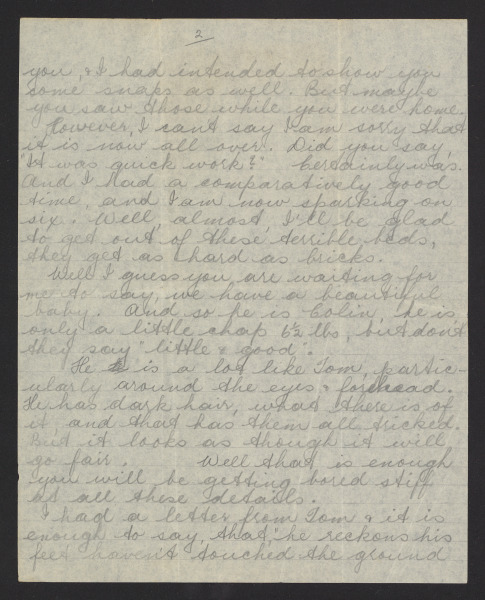 2
you, & I had intended to show you
some snaps as well. But maybe
you saw those while you were home.
However, I can't say I am sorry that
it is now all over. Did you say
"It was quick work?" Certainly was.
And I had a comparatively good
time, and I am now sparking on
six. Well, almost, I'll be glad
to get out of these terrible beds,
they get as hard as bricks.
Well I guess you are waiting for
me to say, we have a beautiful
baby. And so he is Colin, he is
only a little chap 6½ lbs, but don't
they say "little & good".
He is a lot like Tom, partic-
ularly around the eyes & forehead.
He has dark hair, what there is of
it, and that has them all tricked.
But it looks as though it will
go fair. Well that is enough
you will be getting bored stiff
at all these details.
I had a letter from Tom & it is
enough to say, that, "he reckons his
feet haven't touched the ground